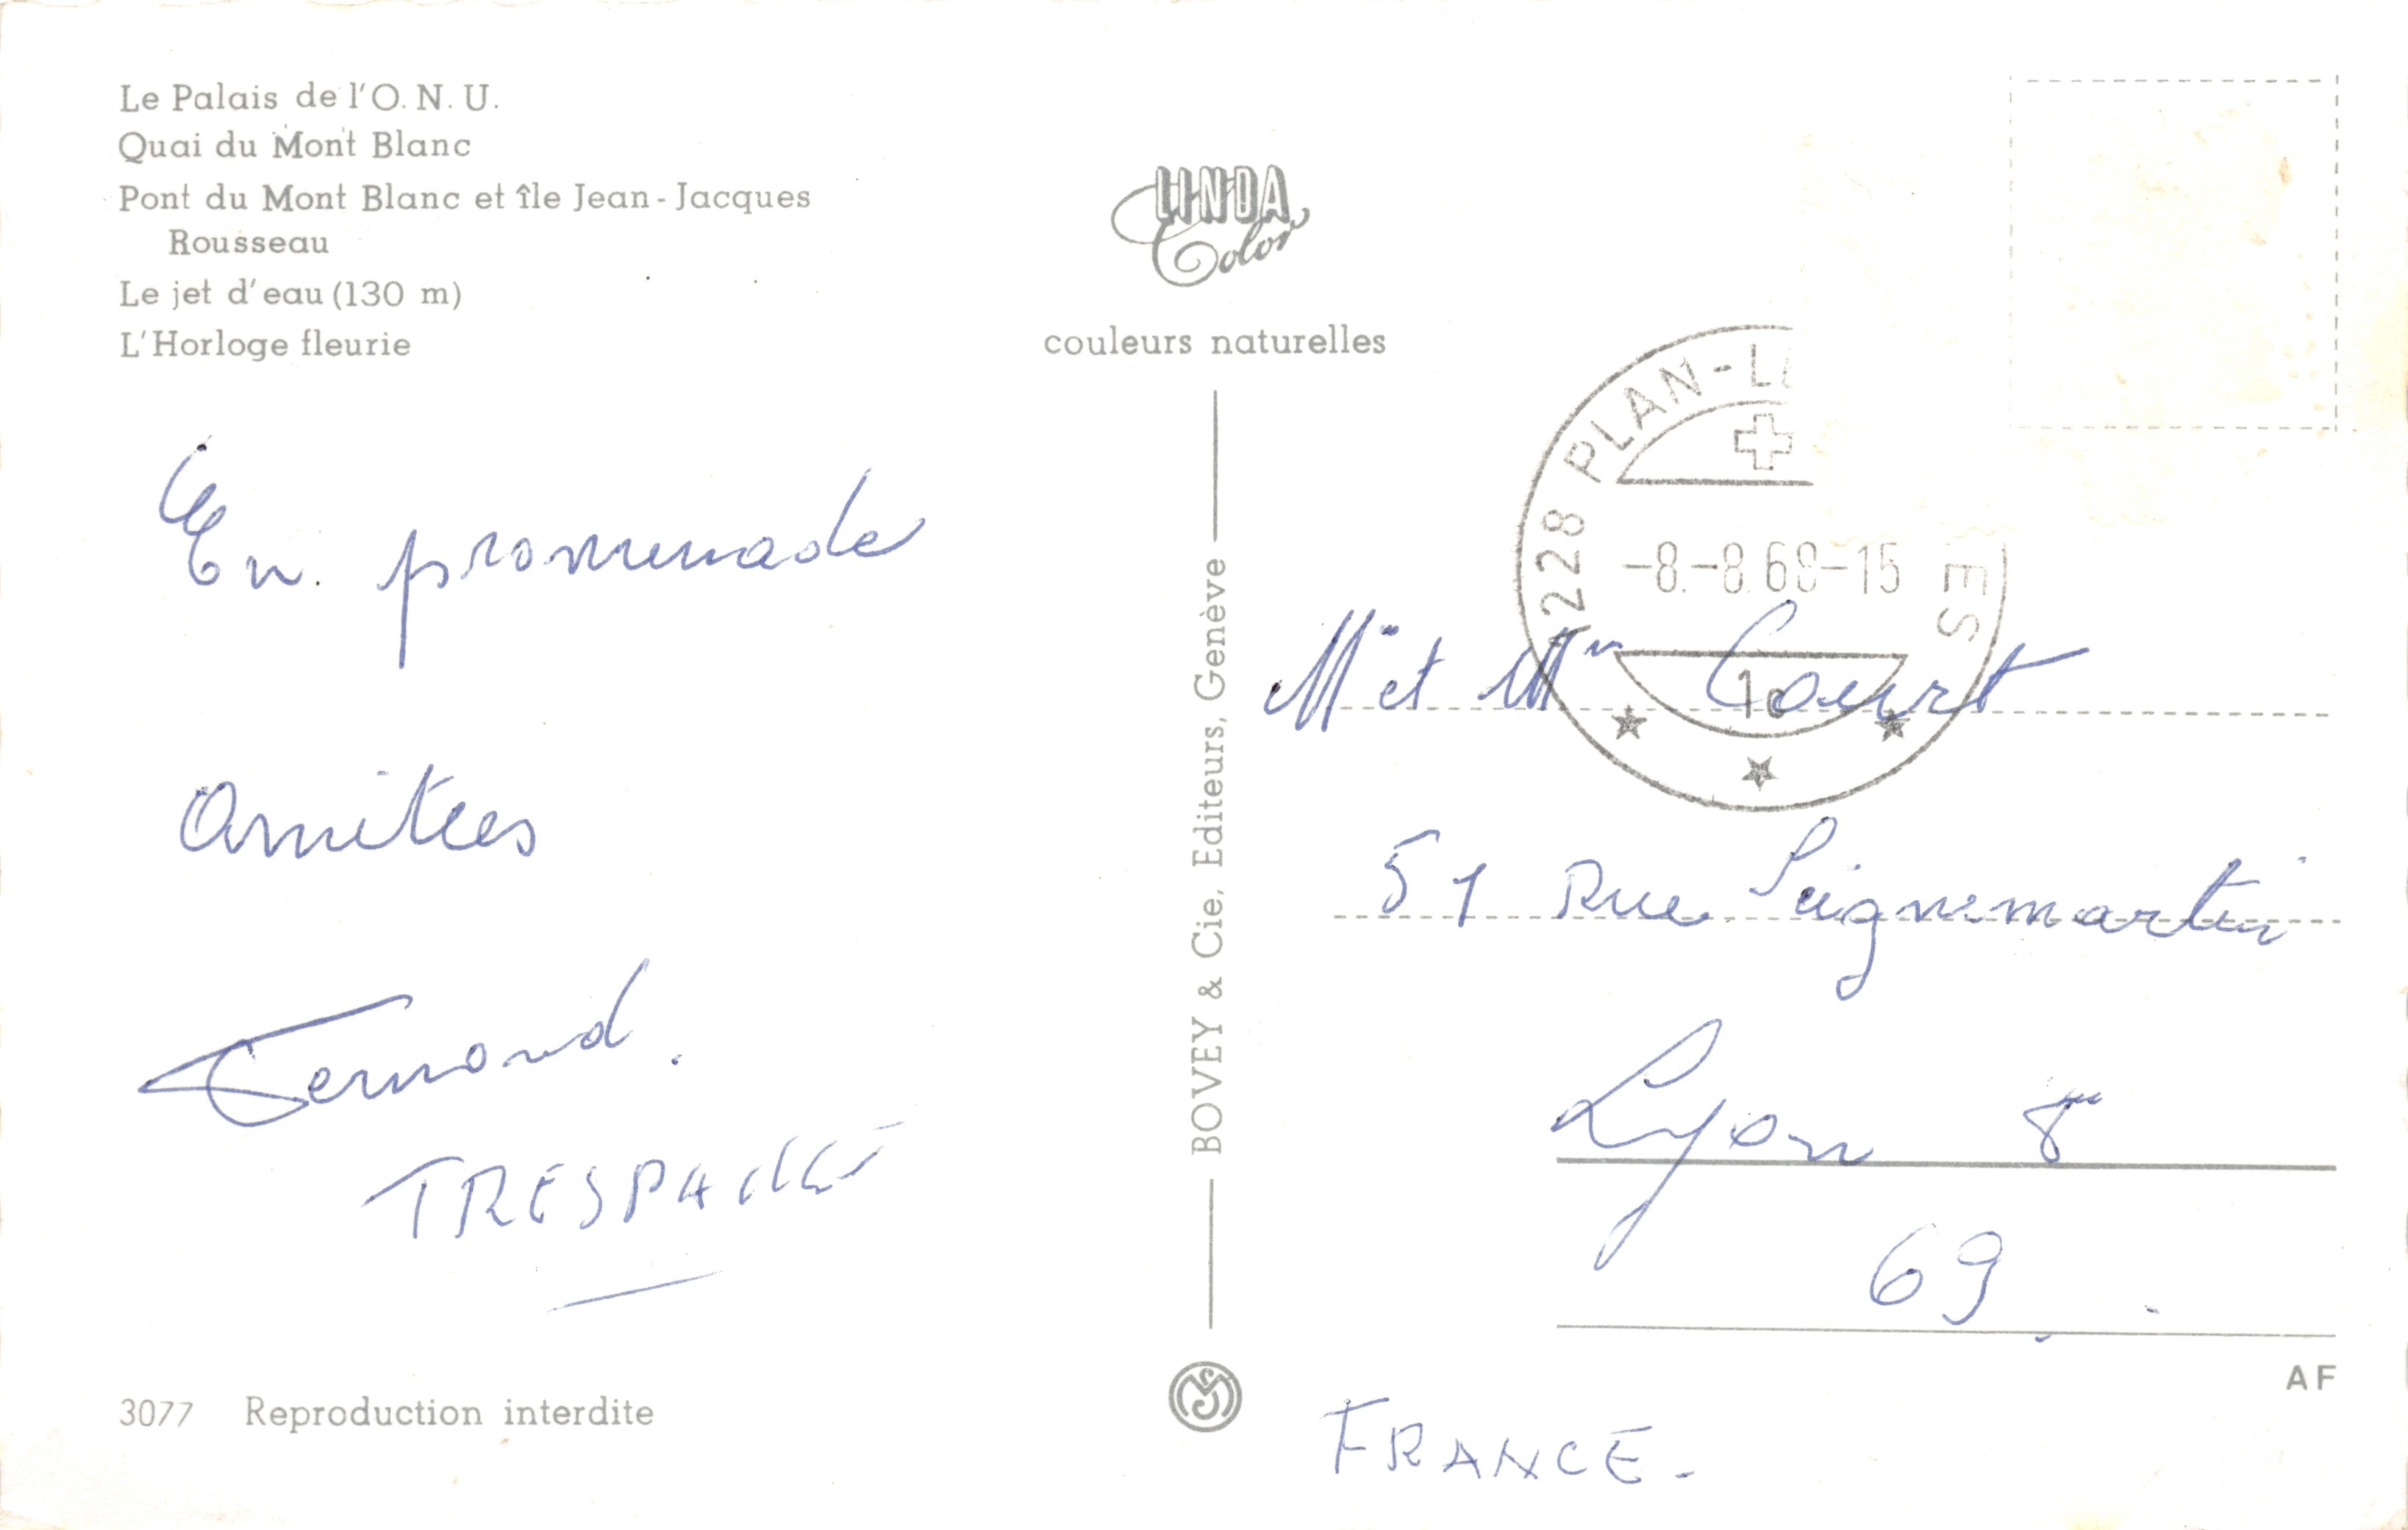 Le Palais de l'O. N. U.
Quai du Mont Blanc
Pont du Mont Blanc et île Jean-Jacques
Rousseau
Le jet d'eau (130 m)
L'Horloge fleurie
LINDA
Color
couleurs naturelles
1228 PLAN-L ES
-8.-8.68-15
1c
En promenade
Amitiées
Fernand.
BOVEY & Cie, Editeurs, Genève
Mr et Mm Court
51 Rue Seignemartin
Lyon 8
69
FRANCE-
AF
3077 Reproduction interdite